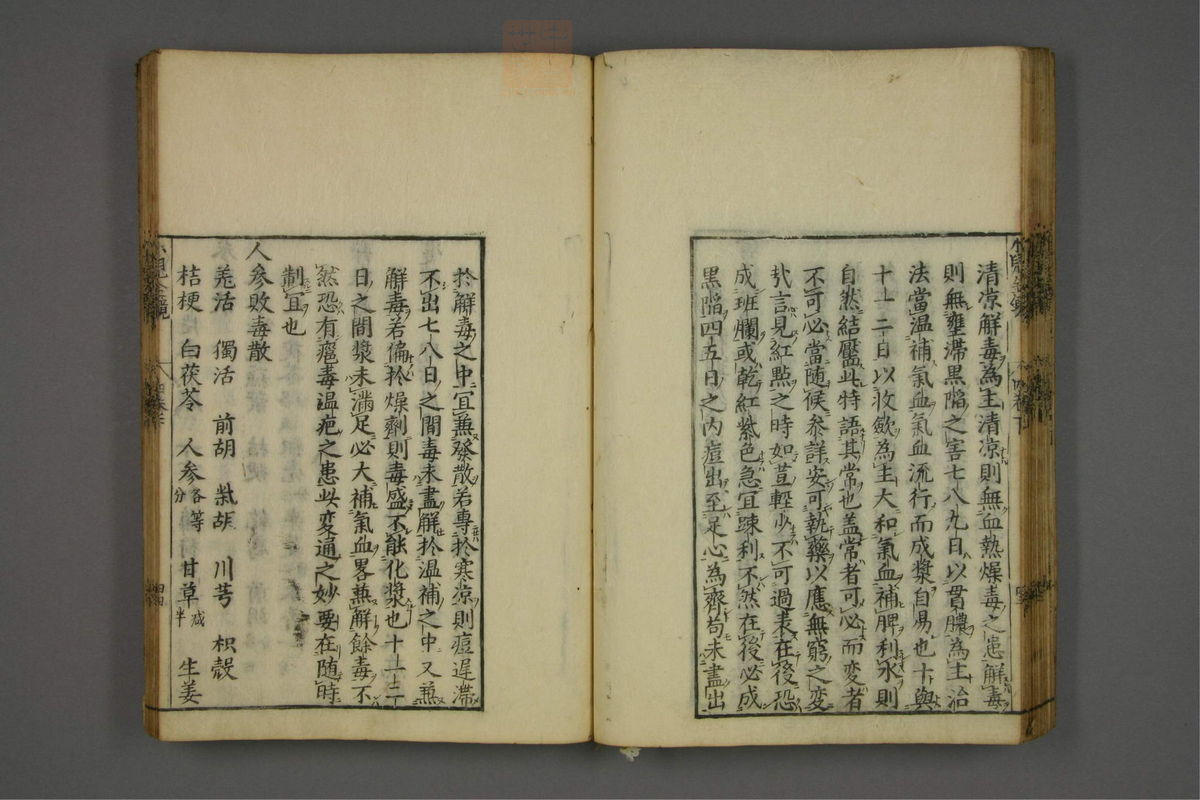 清涼解毒為主清凉則無血熱燥毒之患解毒
則無壅滯黒陷之害七八九日以貫膿為主治
法當温補氣血氣血流行而成漿自易也十與
十一二日以收歛為主大和氣血補脾利水則
自然結靨此特語其常也盖常者可必而変者
不可必當随候参詳安可執藥以應無窮之変
㢤言見紅點之時如荳輕少不可過表在後恐
成班爛或乾紅紫色急宜踈利不然在後必成
黒陷四五日之内痘出至足心為齊苟未盡出
扵解毒之中宜兼發散若專扵寒凉則痘遲滯
不出七八日之間毒未盡解扵温補之中又兼
解毒若偏扵燥劑則毒盛不能化漿也十一十二
日之間漿未滿足必大補氣血畧兼解餘毒不
然恐有癰毒温疤之患此変通之妙要在随時
制宜也
人参敗毒散
羗活 獨活 前胡 柴胡 川芎 枳殼
桔梗 白茯苓 人参各等分 甘草减半 生姜